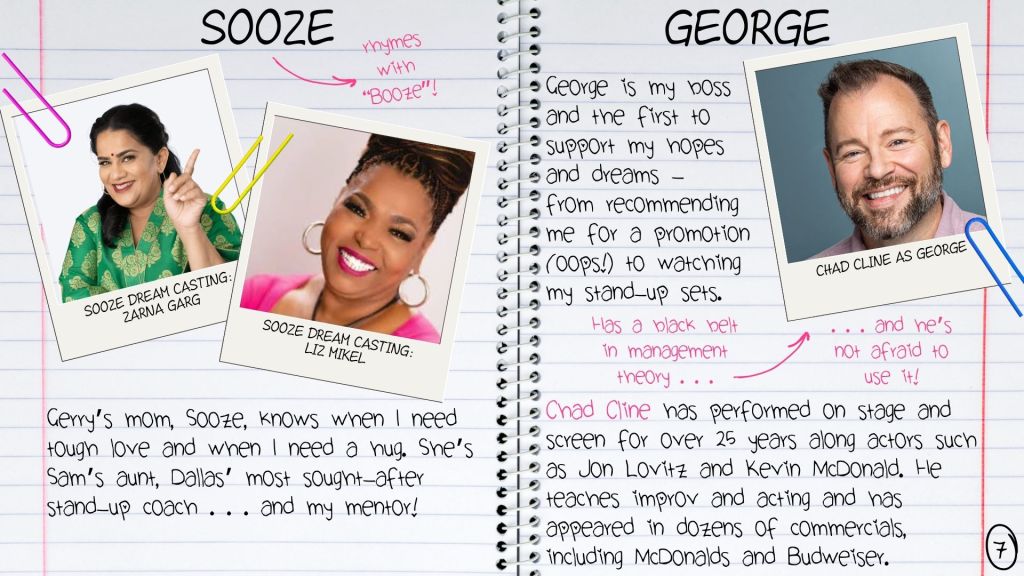 SOOZE
rhymes
with
"Booze"!
SOOZE DREAM CASTING:
ZARNA GARG
SOOZE DREAM CASTING:
LIZ MIKEL
Gerry's mom, Sooze, knows when I need
tough love and when I need a hug. She's
Sam's aunt, Dallas' most sought-after
stand-up coach . . . and my mentor!
GEORGE
George is my boss
and the first to
support my hopes
and dreams -
from recommending
me for a promotion
(OOPS!) to watching
my stand-up sets.
CHAD CLINE AS GEORGE
Has a black belt
in management
theory . . .
. . . and he's
not afraid to
use it!
Chad Cline has performed on stage and
screen for over 25 years along actors such
as Jon Lovitz and Kevin McDonald. He
teaches improv and acting and has
appeared in dozens of commercials,
including McDonalds and Budweiser.
7